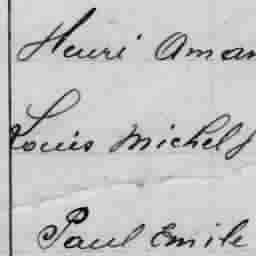 Henri Aman
Louis Michel J
Paul Emile